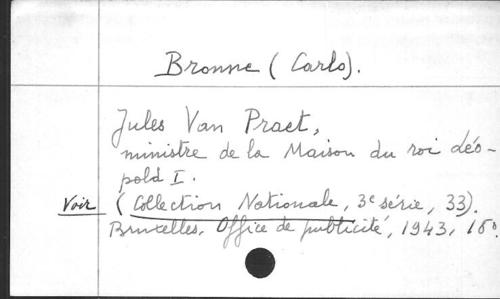 Bronne (Carlo).
Jules Van Praet,
ministre de la Maison du roi Léo-
pold I.
Voir (Collection Nationale, 3e série, 33).
Bruxelles, Office de publicité, 1943, 16°.